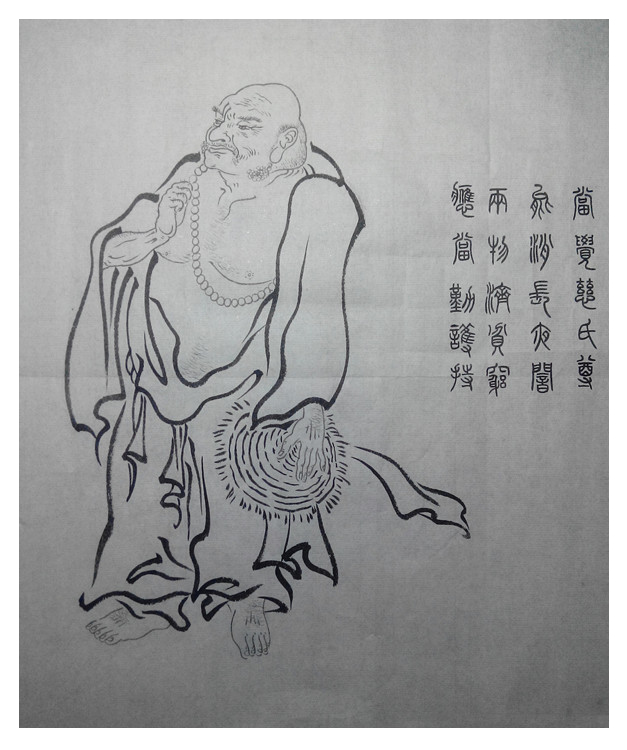 當覺慈氏尊
能消長夜闇
雨物濟貧窮
應當勤護持